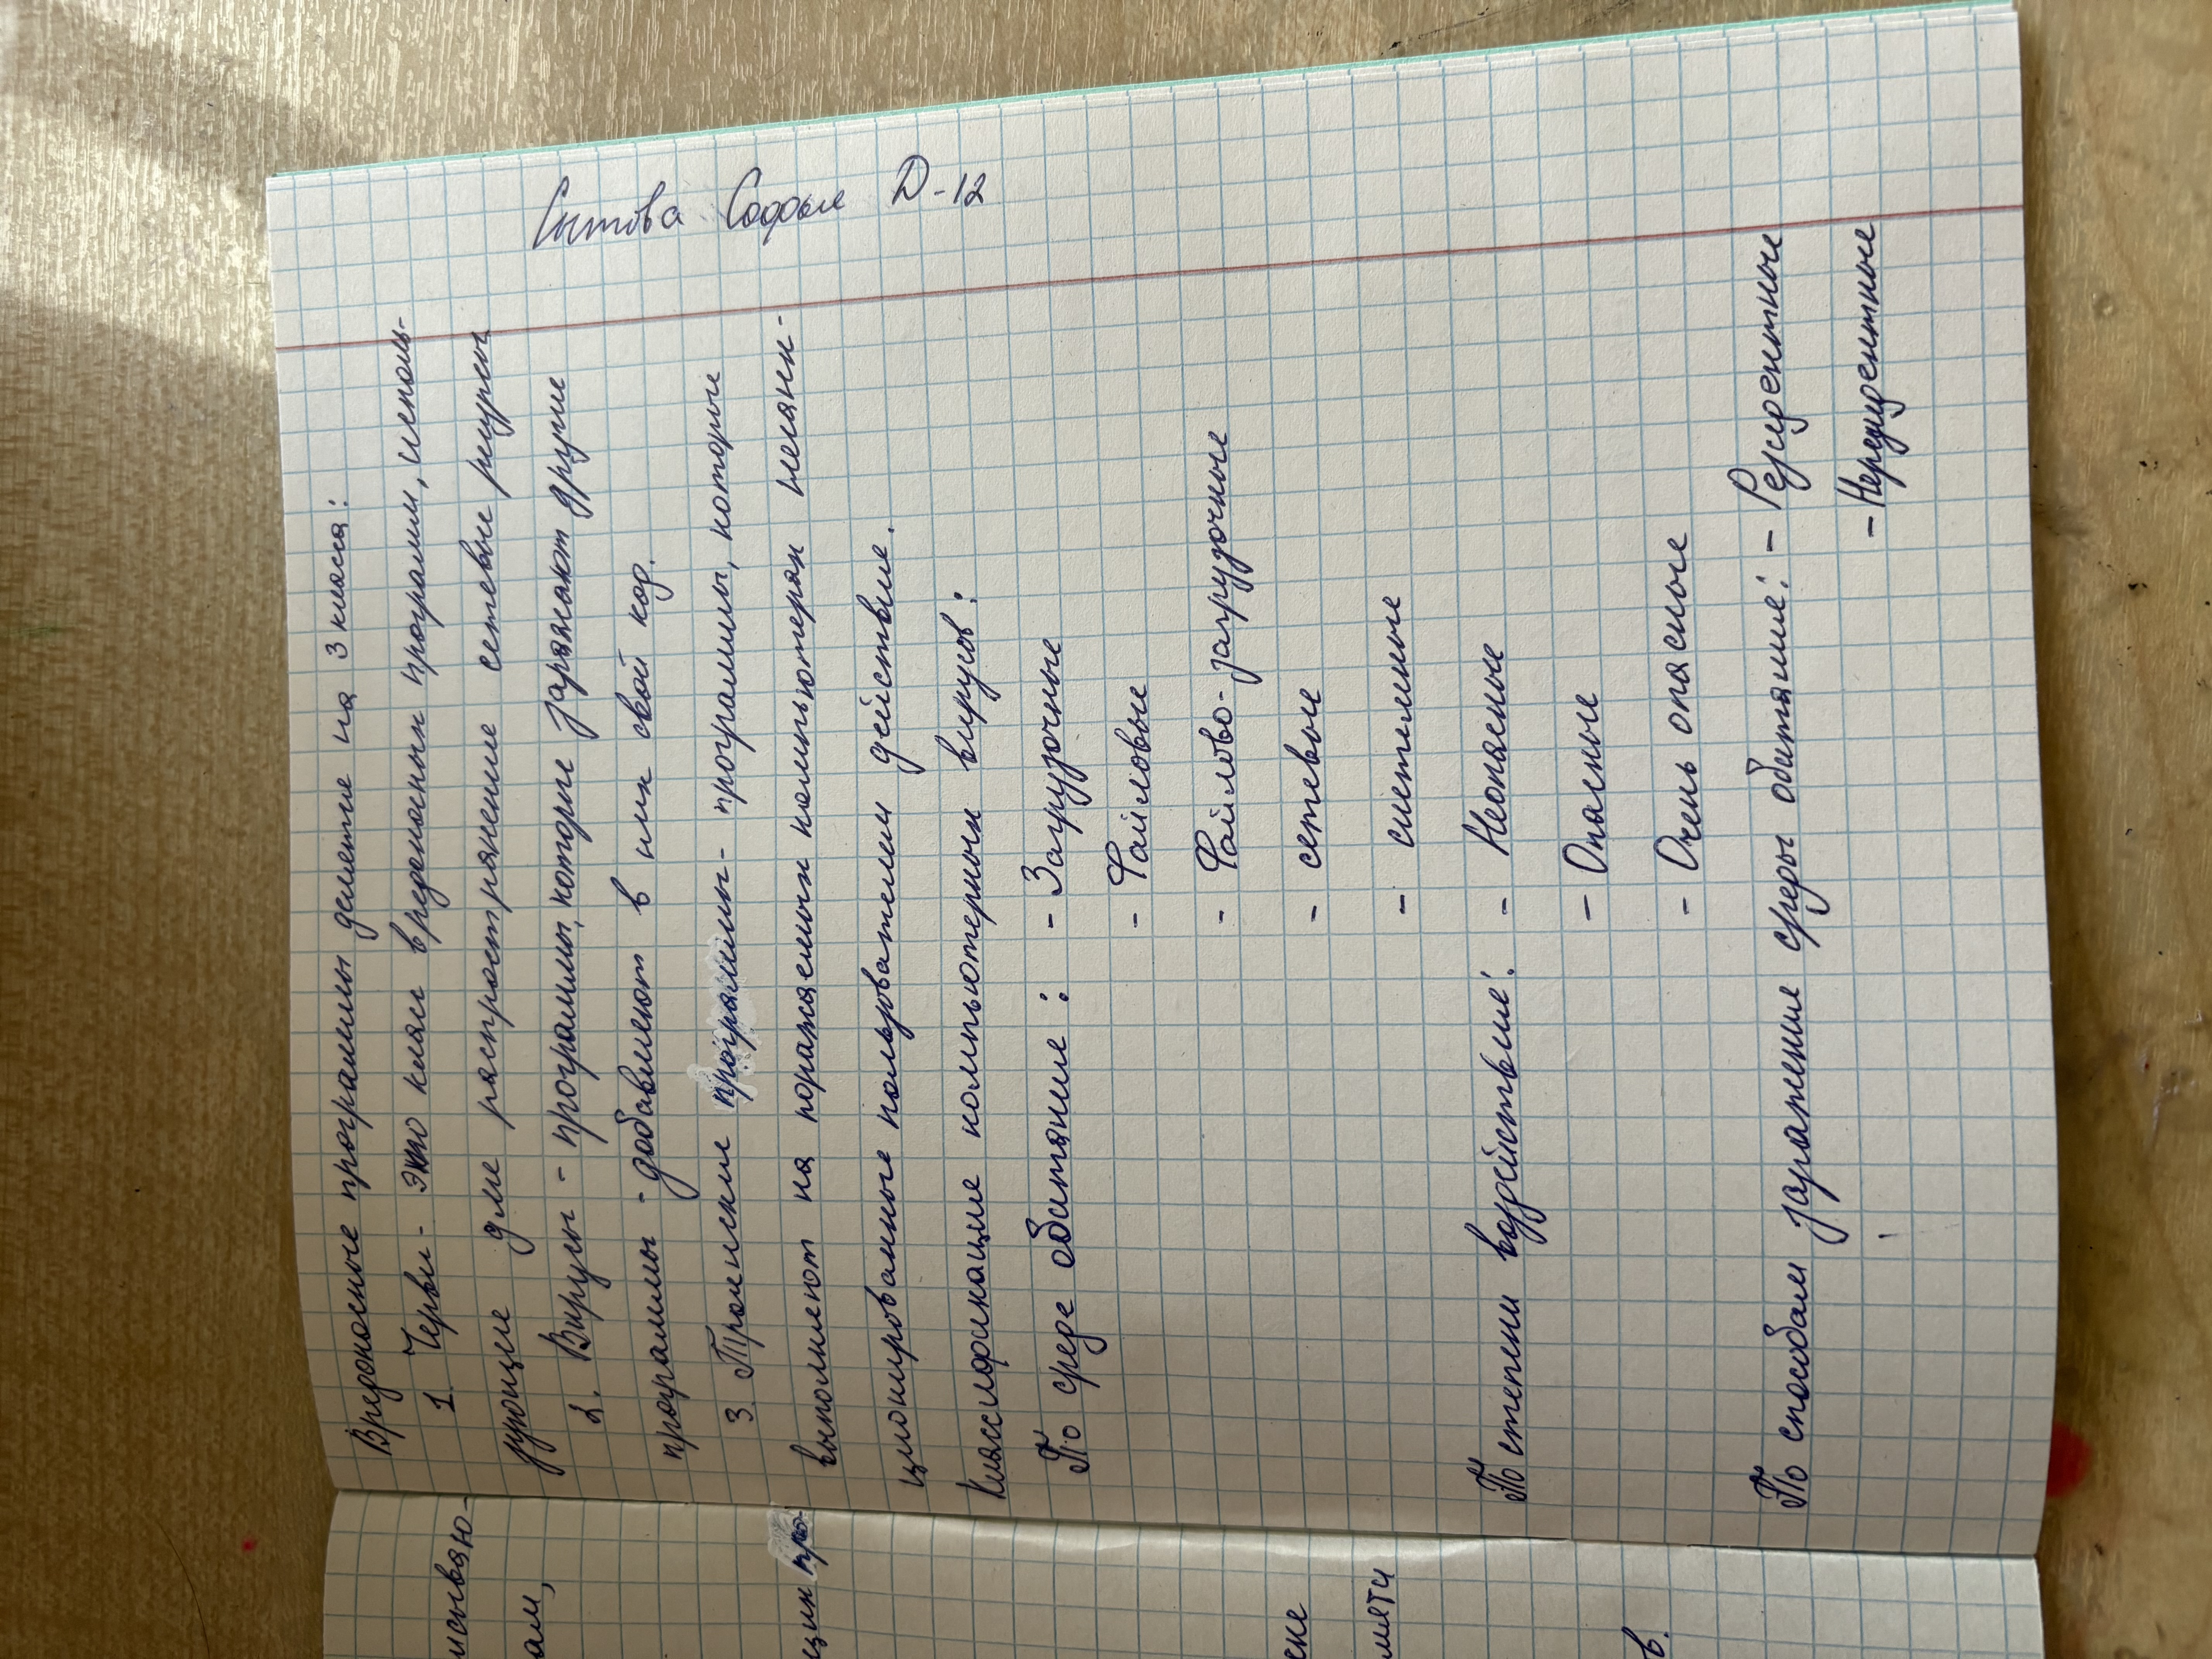 Сытова Софья Д-12
Вредоносные программы делятся на 3 класса:
1. Черви - это класс вредоносных программ, исполь-
зующие для распространения сетевые ресурсы
2. Вирусы - программы, которые заражают другие
программы - добавляют в них свой код.
3. Троянские программы - программы, которые
выполняют на поражаемых компьютерах несанк-
ционированные пользователем действия.
Классификация компьютерных вирусов:
По среде обитания: - Загрузочные
- Файловые
- Файлово-загрузочные
- сетевые
- системные
По степени воздействия: - Неопасные
- Опасные
- Очень опасные
По способам заражения среды обитания: - Резидентные
- Нерезидентные
исываю-
ам,
щих про-
ске
мяти
в.